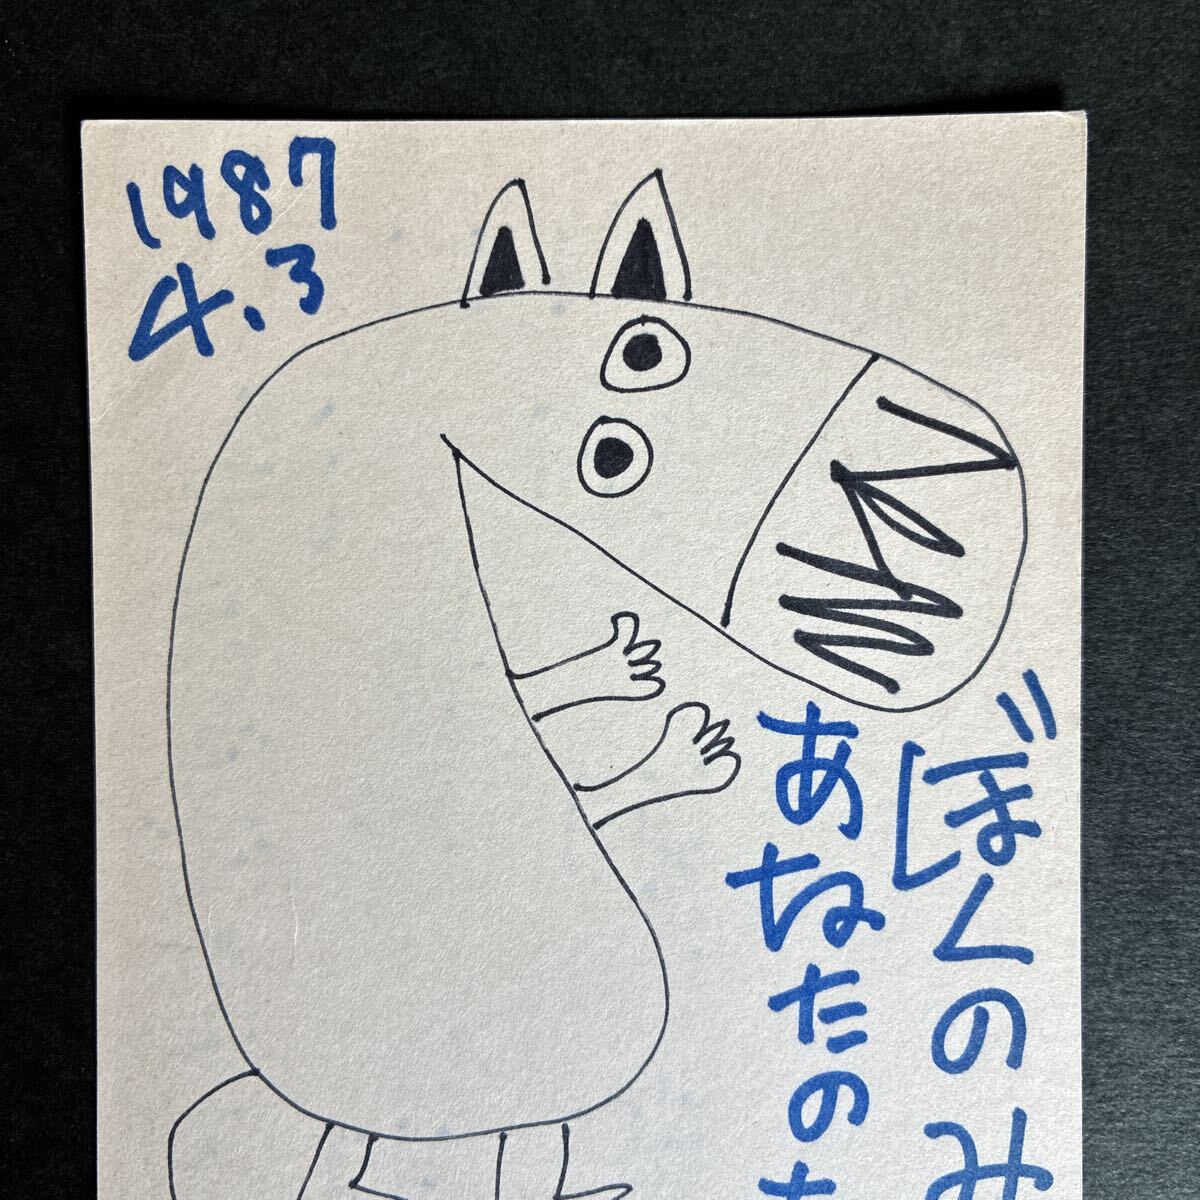 1987
4.3
ぼくのみ
あなたの